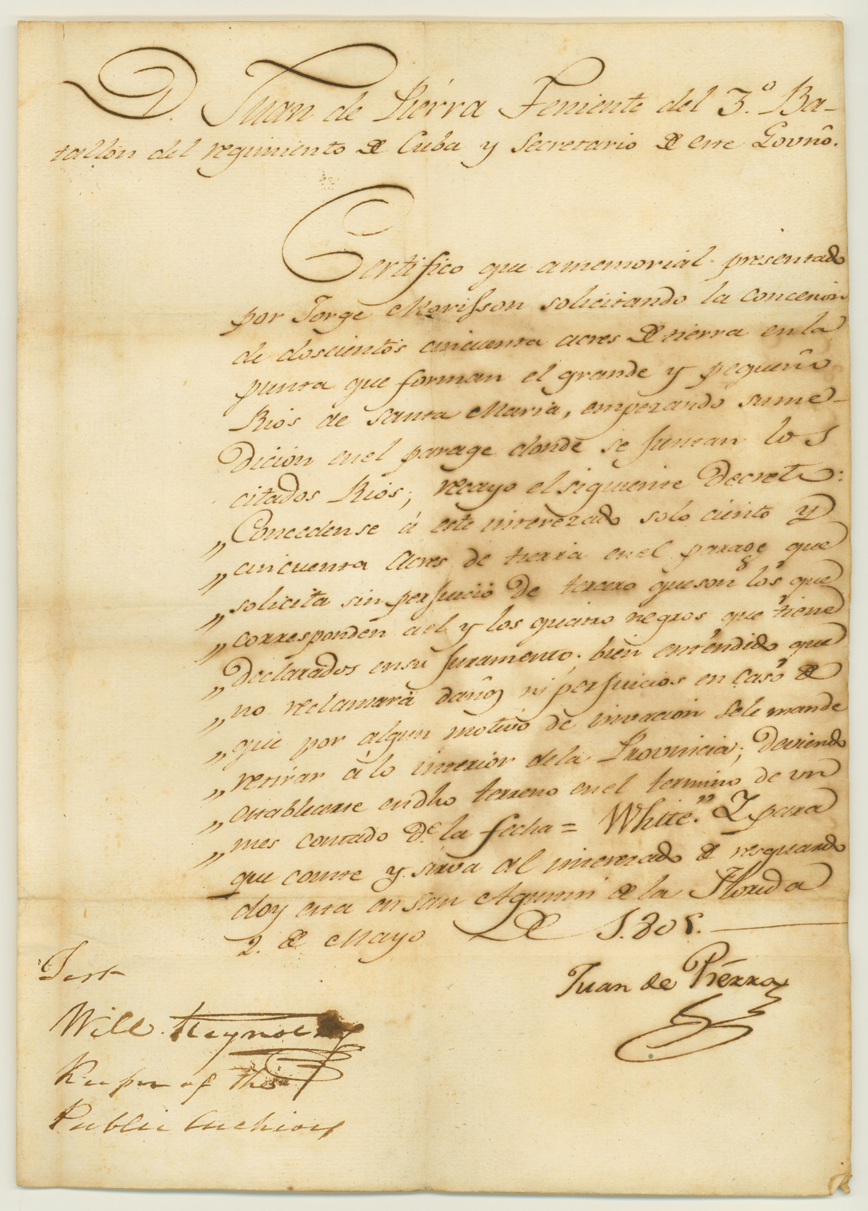 D. Juan de Pierra Teniente del 3.º Ba-
tallon del regimiento de Cuba y Secretario de este Govnô.
Certifico que a memorial presentado
por Jorge Morisson solicitando la concecion
de doscientos cincuenta acres de tierra en la
punta que forman el grande y pequeño
Rios de Santa Maria, empezando su me-
dicion en el parage donde se juntan los
citados Rios; recayo el siguiente Decreto:
„ Concedense á este interezado solo ciento y
„ cincuenta acres de tierra en el parage que
„ solicita sin perjuicio de tercero que son los que
„ corresponden a el y los quatro negros que tiene
„ declarados en su Juramento; bien entendido que
„ no reclamará daños ni perjuicios en caso de
„ que por algun motivo de invacion se le mande
„ retirar á lo interior de la Provincia; deviendo
„ establecerse en dho terreno en el termino de un
„ mes contado de la fecha = White." Y para
que conste y sirva al interezado de resguardo
doy esta en San Agustin de la Florida
2. de Mayo de 1.805.
Juan de Pierra
Test
Will. Reynolds
Keeper of the
Public Archives